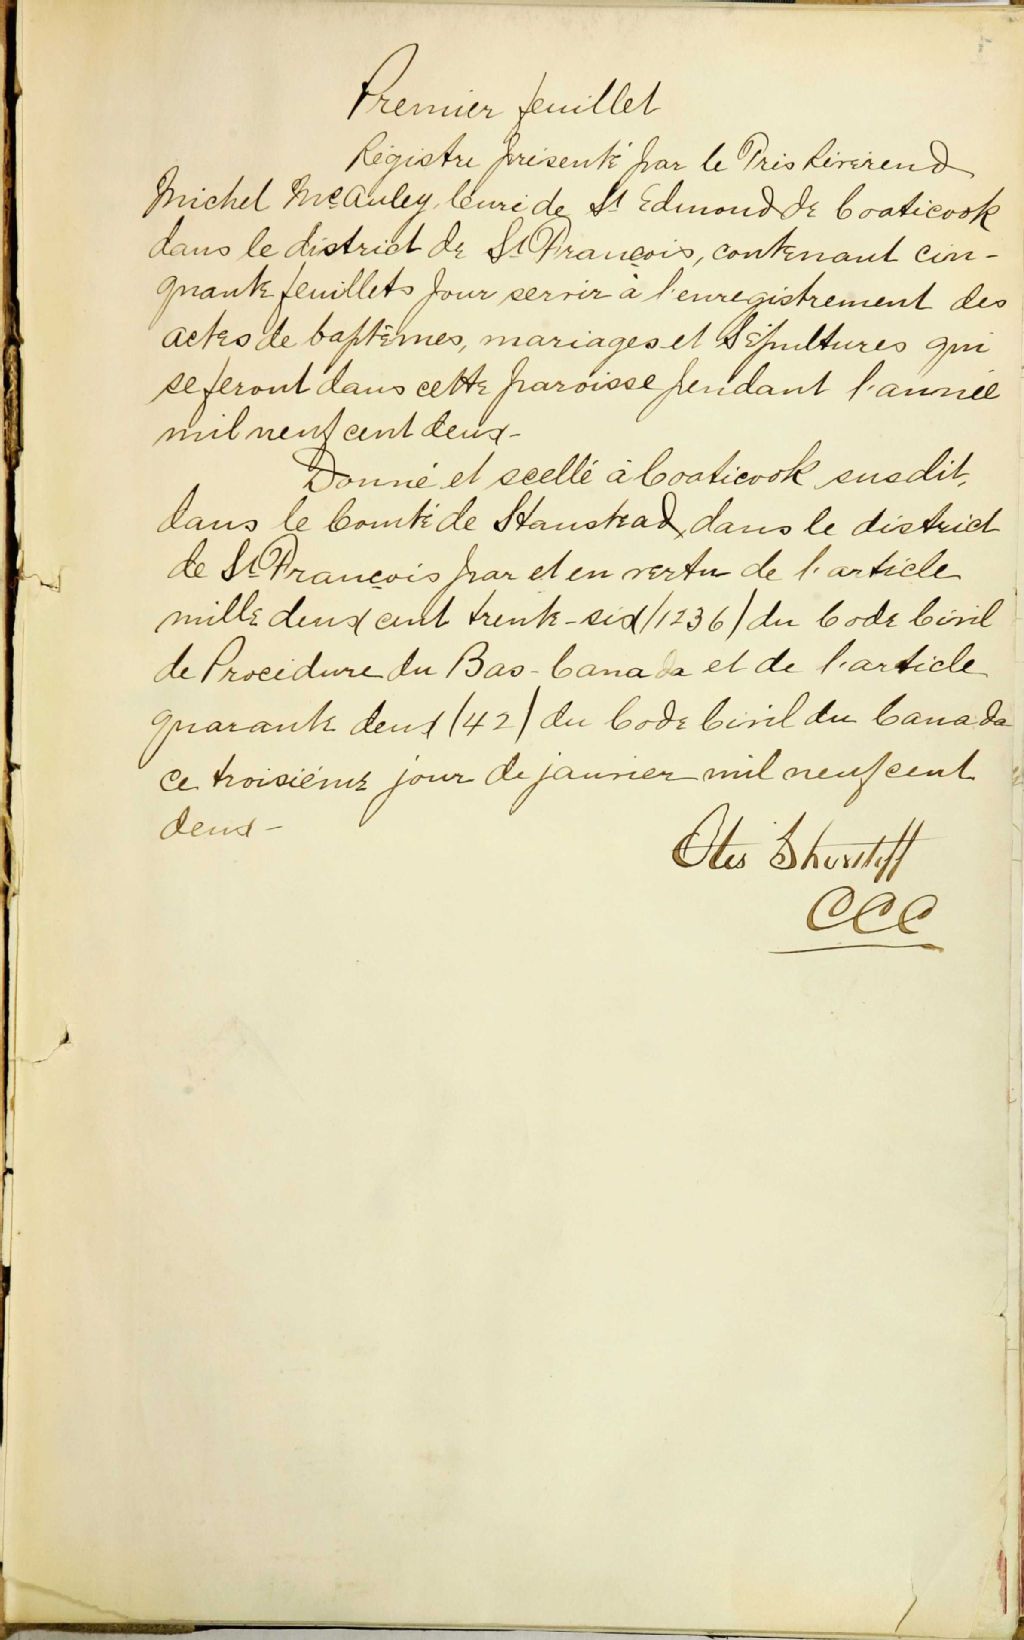 Premier feuillet
Régistre présenté par le Très Révérend
Michel McAuley, Curé de St Edmond de Coaticook
dans le district de St François, contenant cin-
quante feuillets pour servir à l'enregistrement des
actes de baptêmes, mariages et Sépultures qui
se feront dans cette paroisse pendant l'année
mil neuf cent deux-
Donné et scellé à Coaticook susdit,
dans le Comté de Stanstead, dans le district
de St François par et en vertu de l'article
mille deux cent trente-six/1236/du Code Civil
de Procédure du Bas-Canada et de l'article
quarante deux/42/du Code Civil du Canada
ce troisième jour de janvier mil neuf cent
deux-
Otis Shurtleff
CCC